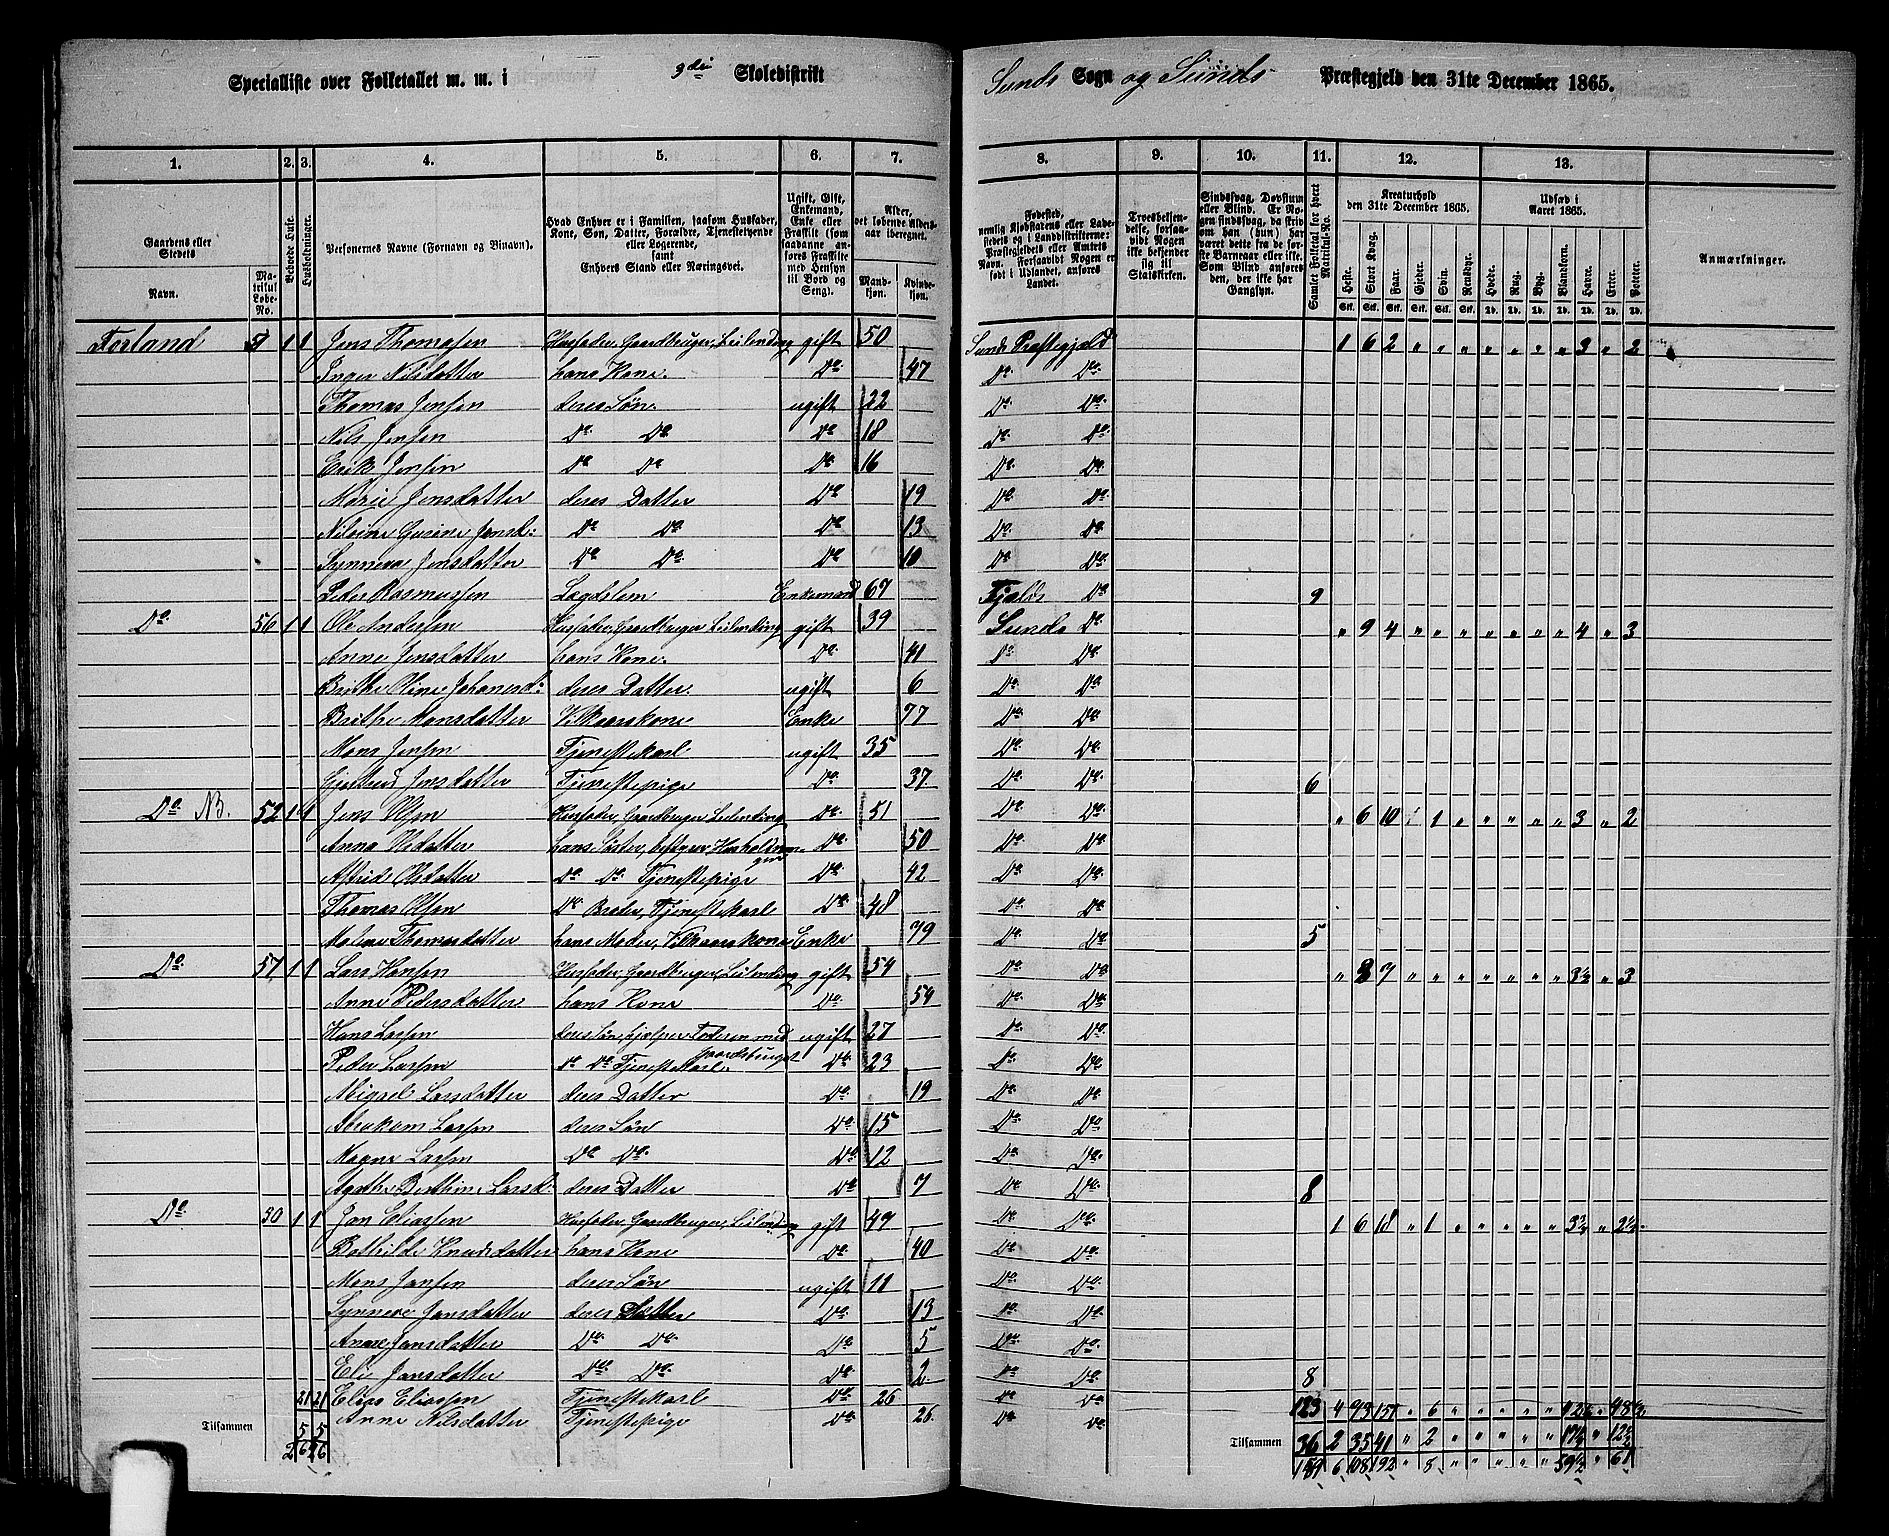 Specialliste over Folketallet m. m. i 9de Skoledistrikt Sunds Sogn og Sunds Præstegjeld den 31te December 1865.
1. 2. 3. 4. 5. 6. 7. 8. 9. 10. 11. 12. 13.
Gaardens eller Stedets Navn. Matrikul Løbe-No.
Beboede Huse.
Husholdninger.
Personernes Navne (Fornavn og Binavn).
Hvad Enhver er i Familien, saasom Husfader, Kone, Søn, Datter, Forældre, Tjenestetyende eller Logerende, samt Enhvers Stand eller Næringsvei.
Ugift, Gift, Enkemand, Enke eller Fraskilt (som saadanne anføres Fraskilte med Hensyn til Bord og Seng).
Alder, det løbende Alders-aar iberegnet. Mandkjøn. Kvindekjøn.
Fødested, nemlig Kjøbstadens eller Ladestedets og i Landdistrikterne: Præstegjeldets eller Amtets Navn. Forsaavidt Nogen er født i Udlandet, anføres Landet.
Troesbekjendelse, forsaavidt Nogen ikke bekjender sig til Statskirken.
Sindssvag, Døvstum eller Blind. Er Nogen sindssvag, da skriv om han (hun) har været dette fra de første Barneaar eller ikke. Som Blind anføres den, der ikke har Gangsyn.
Samlet Folketal for hvert Matrikul-No.
Kreaturhold den 31te December 1865. Heste. Stort Kvæg. Faar. Gjeder. Svin. Rensdyr.
Udsæd i Aaret 1865. Hvede. Rug. Byg. Blandkorn. Havre. Erter. Poteter.
Anmærkninger.
Forland 51 1 1 Jens Thomassen Husfader, Gaardbruger, Leilending gift 50 Sunds Præstegjeld 1 6 2 " " " " " " " 3 " 2
Inger Nilsdatter hans Kone. Do 47 Do Do
Thomas Jensen deres Søn. ugift 22 Do Do
Nils Jensen Do Do Do 18 Do Do
Erik Jensen Do Do Do 16 Do Do
Marie Jensdatter deres Datter Do 19 Do Do
Nilsine Gurine Jensd: Do Do Do 13 Do Do
Synneva Jensdatter Do Do Do 10 Do Do
Peder Rasmussen Lægdslem Enkemand 67 Fjelds Do 9
Do 56 1 1 Ole Andersen Husfader, Gaardbruger Leilending gift 39 Sunds Do " 9 4 " " " " " " " 4 " 3
Anne Jensdatter hans Kone. Do 41 Do Do
Brithe Oline Johanesd: deres Datter ugift 6 Do Do
Brithe Monsdatter Vilkaarskone Enke 77 Do Do
Mons Jensen Tjenestekarl ugift 35 Do Do
Jensdatter Tjenestepige Do 37 Do Do 6
Do NB. 52 1 1 Jens Olsen Husfader, Gaardbruger Leilending Do 51 Do Do " 6 10 " 1 " " " " " 3 " 2
Anna Olsdatter hans Søster, bestyrer Husholdningen Do 50 Do Do
Astrid Olsdatter Do Do Tjenestepige Do 42 Do Do
Thomas Olsen Do Broder, Tjenestekarl Do 48 Do Do
Malene Thomasdatter hans Moder, Vilkaarskone Enke 79 Do Do 5
Do 57 1 1 Lars Hansen Husfader, Gaardbruger, Leilending gift 54 Do Do " 8 7 " " " " " " " 3½ " 3
Anne Pedersdatter hans Kone Do 54 Do Do
Hans Larsen deres Søn, hjelper Faderen med Gaardsbruget ugift 27 Do Do
Peder Larsen Do Do Tjenestekarl Do 23 Do Do
Migsel Larsdatter deres Datter Do 19 Do Do
Abraham Larsen deres Søn Do 15 Do Do
Magne Larsen Do Do Do 12 Do Do
Agathe Berthine Larsd: deres Datter Do 7 Do Do 8
Do 50 1 1 Jan Eliassen Husfader, Gaardbruger, Leilending gift 49 Do Do 1 6 18 " 1 " " " " " " 2½
Bothilde Knudsdatter hans Kone Do 40 Do Do
Mons Jansen deres Søn ugift 11 Do Do
Synneve Jansdatter deres Datter Do 13 Do Do
Anne Jansdatter Do Do Do 5 Do Do
Eli Jansdatter Do Do Do 2 Do Do 8
21 21 Elias Eliassen Tjenestekarl Do 26 Do Do 123 4 151 " 6 " " " " "
Tilsammen 5 5 Anne Nilsdatter Tjenestepige Do 26 Do Do Tilsammen 36 2 35 41 " 2 " " " " "
26 26 159 6 108 192 " 8 " " " " " 59½ " 61